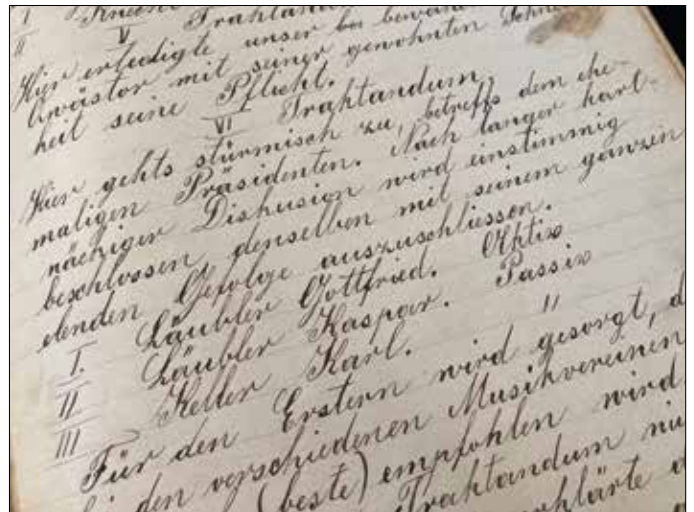 II V Traktandum
Hier erledigte unser
mit seiner gewohnten
heit seine Pflicht.
VI Traktandum.
Hier gehts stürmisch zu, betreffs dem ehe-
maligen Präsidenten. Nach langer hart-
näckiger Diskusion wird einstimmig
beschlossen denselben mit seinem ganzen
elenden Gefolge auszuschliessen.
I. Läubler Gottfried. Aktiv
II Läubler Kaspar. Passiv
III Keller Karl. "
Für den Erstern wird gesorgt, d
den verschiedenen Musikvereinen
(beste) empfohlen wird.
Traktandum
klärte